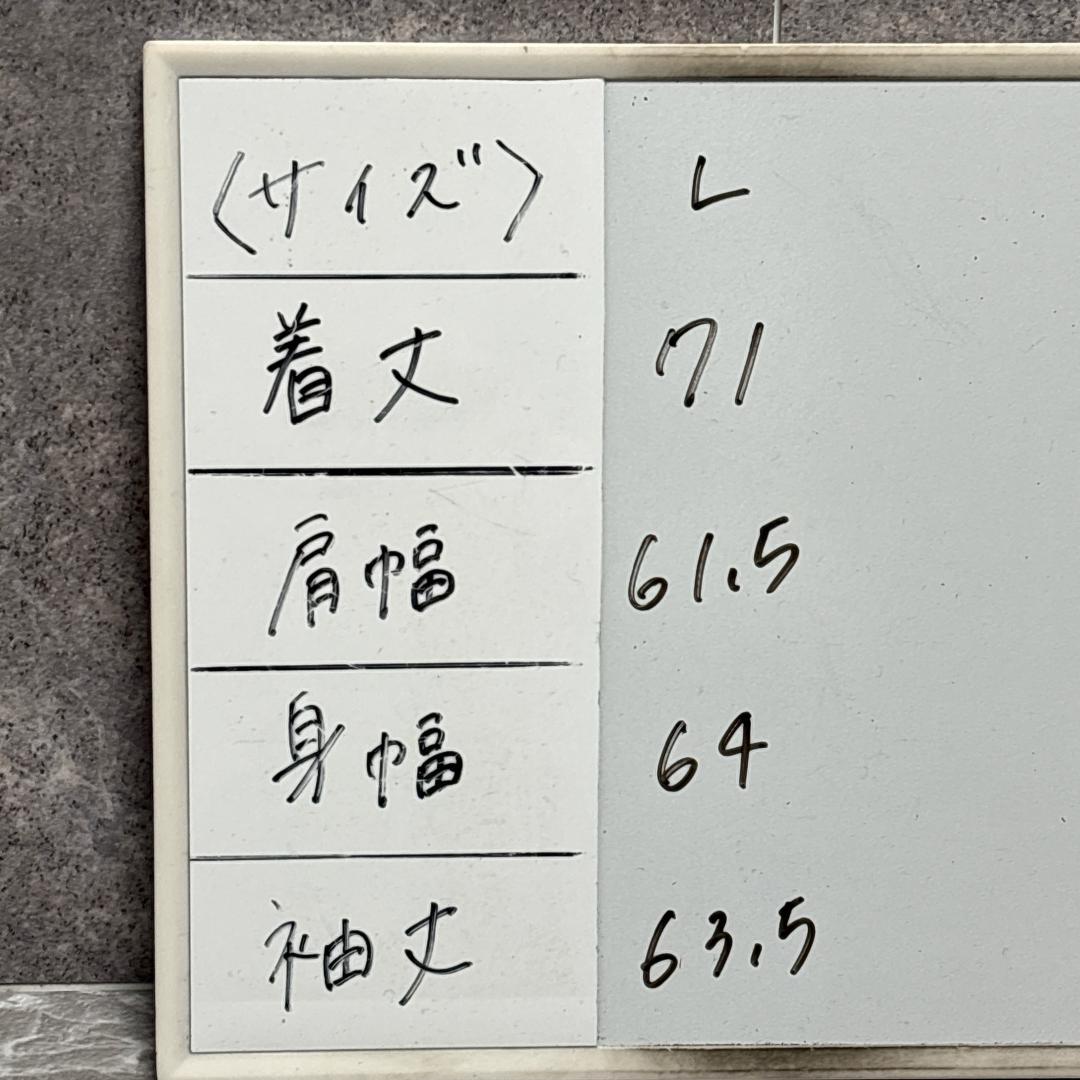 〈サイズ〉 L
着丈 71
肩幅 61.5
身幅 64
袖丈 63.5